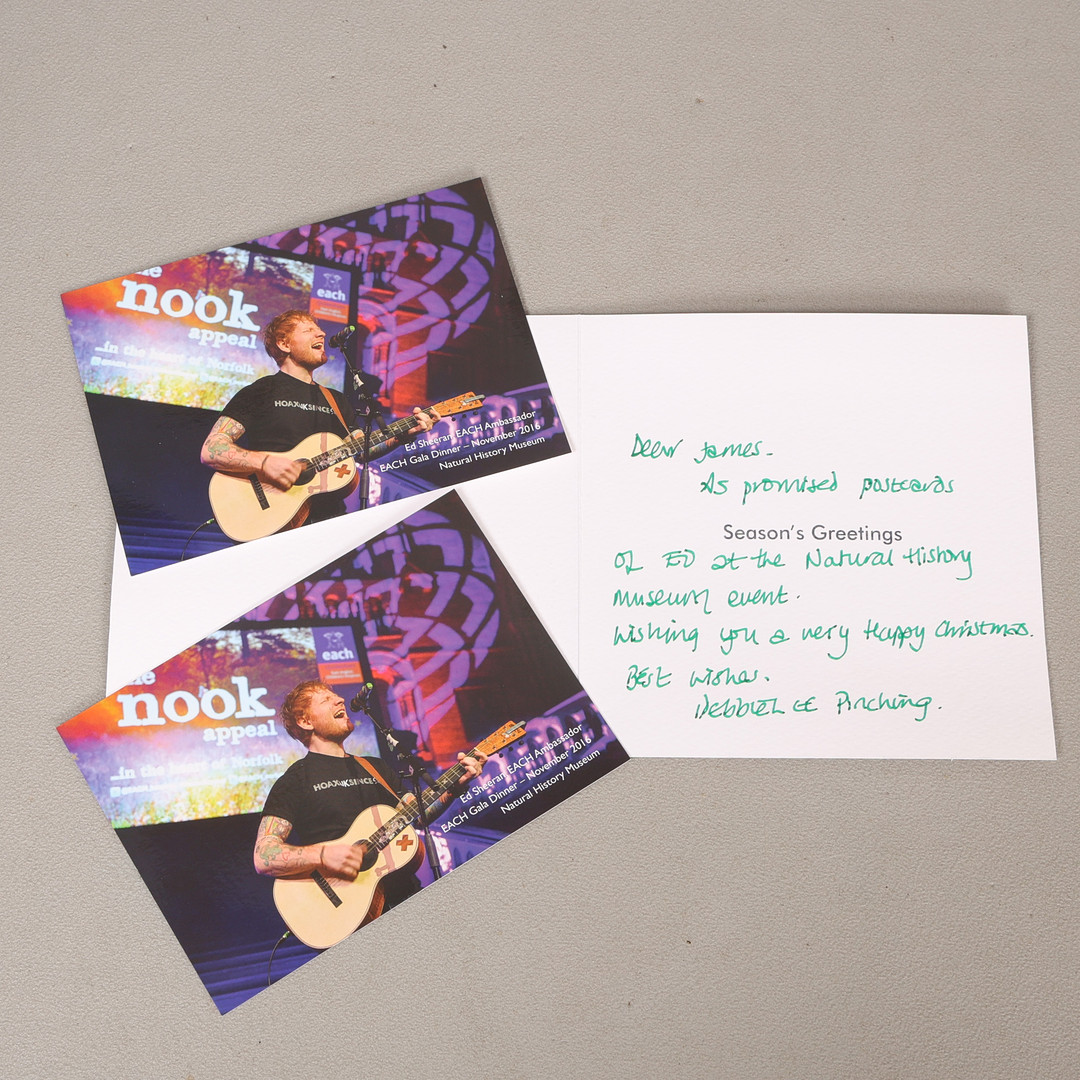 the
nook
appeal
...in the heart of Norfolk
each
HOAX
Ed Sheeran EACH Ambassador
EACH Gala Dinner – November 2016
Natural History Museum
the
nook
appeal
...in the heart of Norfolk
each
HOAX
Ed Sheeran EACH Ambassador
EACH Gala Dinner – November 2016
Natural History Museum
Dear James.
As promised postcards
Season's Greetings
of ED at the Natural History
museum event.
Wishing you a very Happy Christmas.
Best wishes.
DEBBIE LEE Pinching.